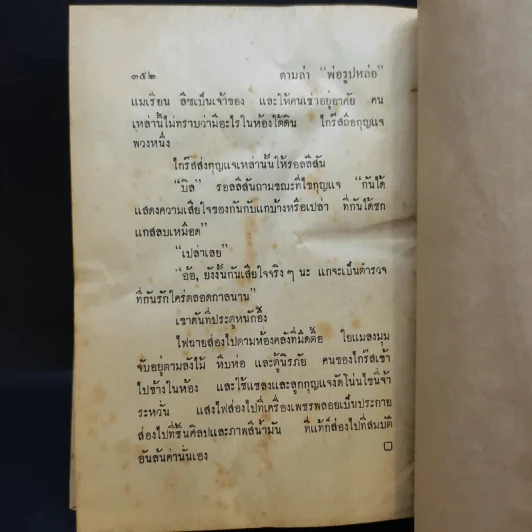 ๓๕๒ ตามล่า “พ่อรูปหล่อ”
แมเรียน ลีซเป็นเจ้าของ และให้คนเช่าอยู่อาศัย คน
เหล่านี้ไม่ทราบว่ามีอะไรในห้องใต้ดิน ไกร๊สถือกุญแจ
พวงหนึ่ง
ไกร๊สส่งกุญแจเหล่านั้นให้รอลลิสัน
“บิล” รอลลิสันถามขณะที่ไขกุญแจ “กันได้
แสดงความเสียใจของกันกับแกบ้างหรือเปล่า ที่กันได้ชก
แกสลบเหมือด”
“เปล่าเลย”
“อ้อ, ยังงั้นกันเสียใจจริง ๆ นะ แกจะเป็นตำรวจ
ที่กันรักใคร่ตลอดกาลนาน”
เขาดันที่ประตูหนักอึ้ง
ไฟฉายส่องไปตามห้องคลังที่มืดตื้อ ใยแมลงมุม
จับอยู่ตามลังไม้ หีบห่อ และตู้นิรภัย คนของไกร๊สเข้า
ไปข้างในห้อง และใช้แชลงและลูกกุญแจงัดโน่นไขนี่จ้า
ระหวั่น แสงไฟส่องไปที่เครื่องเพชรพลอยเป็นประกาย
ส่องไปที่ชิ้นศิลปและภาพสีน้ำมัน ที่แท้ก็ส่องไปที่สมบัติ
อันล้นค่านั่นเอง